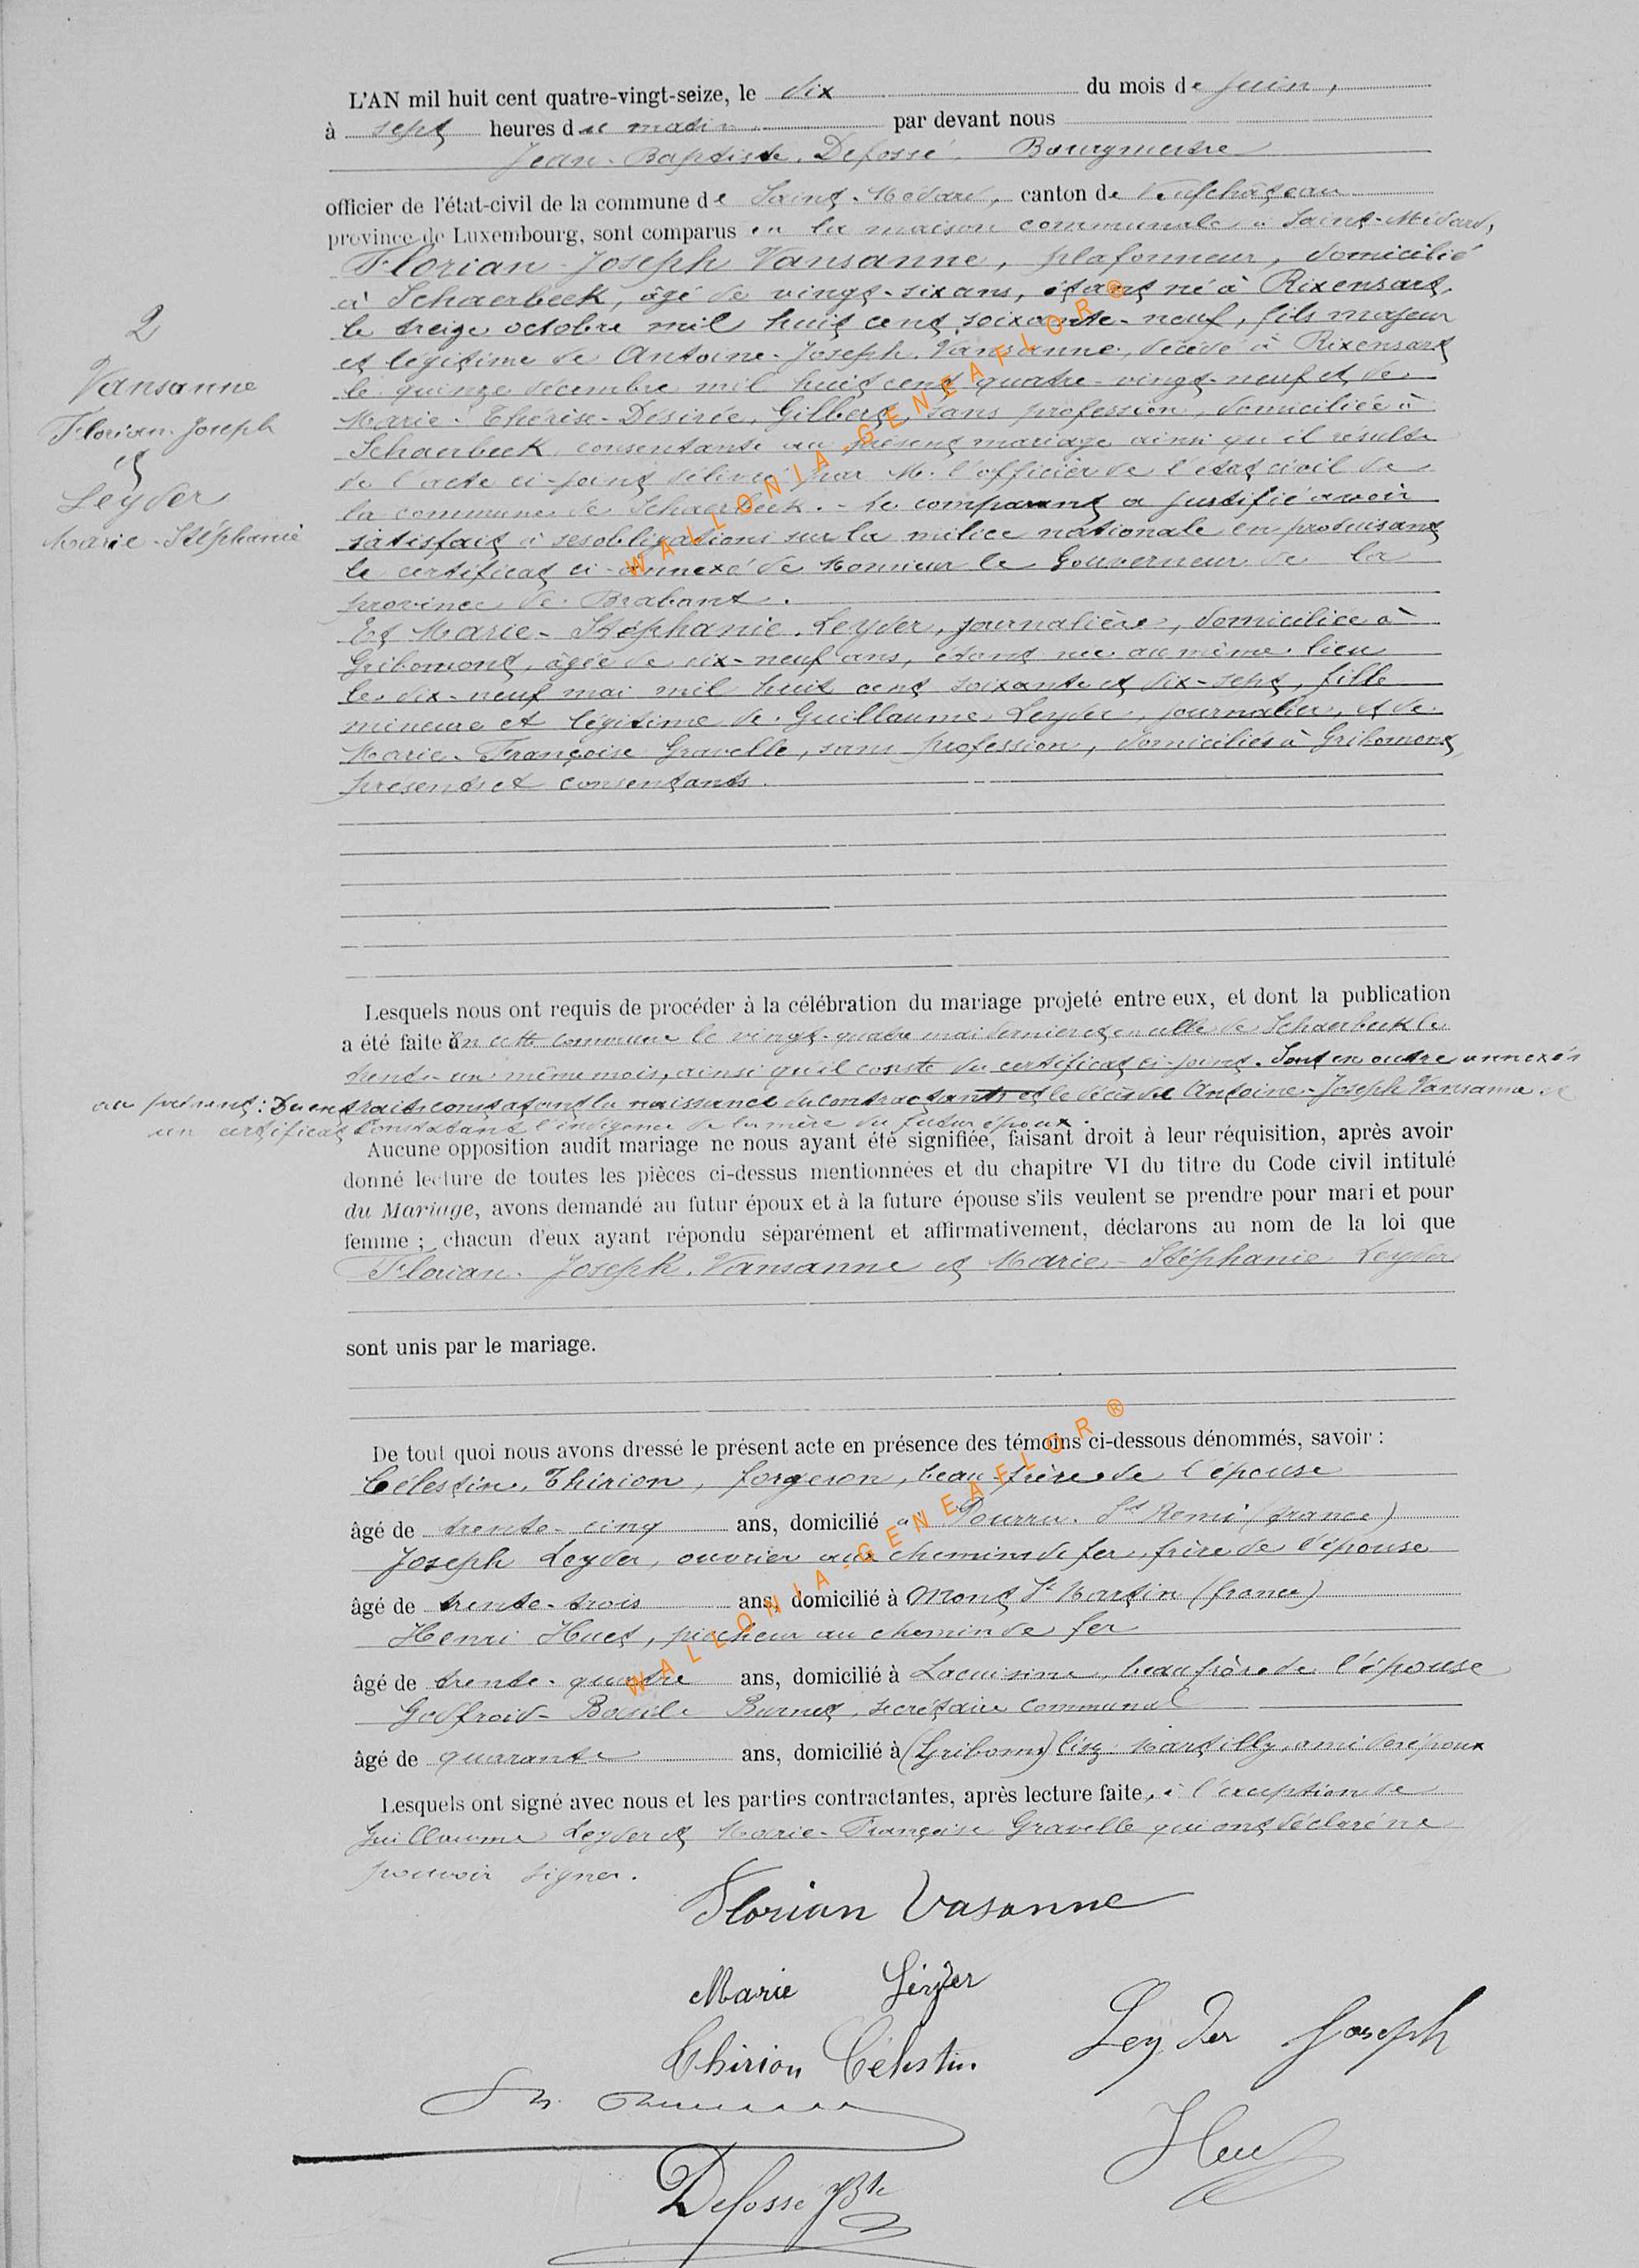 L'AN mil huit cent quatre-vingt-seize, le dix du mois de juin,
à sept heures du matin par devant nous
Jean-Baptiste Defossé, Bourgmestre
officier de l'état-civil de la commune de Saint-Médard, canton de Neufchâteau
province de Luxembourg, sont comparus en la maison communale à Saint-Médard,
Florian-Joseph Vansanne, plafonneur, domicilié
à Schaerbeek, âgé de vingt-six ans, étant né à Rixensart,
le treize octobre mil huit cent soixante-neuf, fils majeur
et légitime de Antoine-Joseph Vansanne, décédé à Rixensart
le quinze décembre mil huit cent quatre-vingt-neuf et de
Marie-Thérèse-Désirée Gilbert, sans profession, domiciliée à
Schaerbeek, consentante au présent mariage ainsi qu'il résulte
de l'acte ci-joint délivré par M. l'officier de l'état civil de
la commune de Schaerbeek. - Le comparant a justifié avoir
satisfait à ses obligations sur la milice nationale en produisant
le certificat ci-annexé de Monsieur le Gouverneur de la
province de Brabant.
Et Marie-Stéphanie Leyder, journalière, domiciliée à
Gribomont, âgée de dix-neuf ans, étant née au même lieu
le dix-neuf mai mil huit cent soixante et dix-sept, fille
mineure et légitime de Guillaume Leyder, journalier, et de
Marie-Françoise Gravelle, sans profession, domiciliés à Gribomont,
présents et consentants.
2
Vansanne
Florian-Joseph
et
Leyder
Marie-Stéphanie
Lesquels nous ont requis de procéder à la célébration du mariage projeté entre eux, et dont la publication
a été faite en cette commune le vingt-quatre mai dernier et en celle de Schaerbeek le
trente-un même mois, ainsi qu'il conste du certificat ci-joint. Sont en outre annexés
au présent: Du extraits constatant la naissance du contractant et le décès de Antoine-Joseph Vansanne et
un certificat constatant l'indigence de la mère du futur époux.
Aucune opposition audit mariage ne nous ayant été signifiée, faisant droit à leur réquisition, après avoir
donné lecture de toutes les pièces ci-dessus mentionnées et du chapitre VI du titre du Code civil intitulé
du Mariage, avons demandé au futur époux et à la future épouse s'ils veulent se prendre pour mari et pour
femme ; chacun d'eux ayant répondu séparément et affirmativement, déclarons au nom de la loi que
Florian-Joseph Vansanne et Marie-Stéphanie Leyder
sont unis par le mariage.
De tout quoi nous avons dressé le présent acte en présence des témoins ci-dessous dénommés, savoir :
Célestin Thirion, forgeron, beau-frère de l'épouse
âgé de trente-cinq ans, domicilié à Pourru-St Remi (france)
Joseph Leyder, ouvrier aux chemins de fer, frère de l'épouse
âgé de trente-trois ans, domicilié à Mont St Martin (france)
Henri Huet, piocheur au chemin de fer
âgé de trente-quatre ans, domicilié à Lacuisine, beau frère de l'épouse
Godfroid-Basile Burnet, secrétaire communal
âgé de quarante ans, domicilié à (Gribomt) Martilly, ami de l'époux
Lesquels ont signé avec nous et les parties contractantes, après lecture faite, à l'exception de
Guillaume Leyder et Marie-Françoise Gravelle qui ont déclaré ne
pouvoir signer.
Florian Vasanne
Marie Leyder
Thirion Célestin
Leyder Joseph
Huet
Defossé JBte
WALLONIA-GENEAFLOR®
WALLONIA-GENEAFLOR®